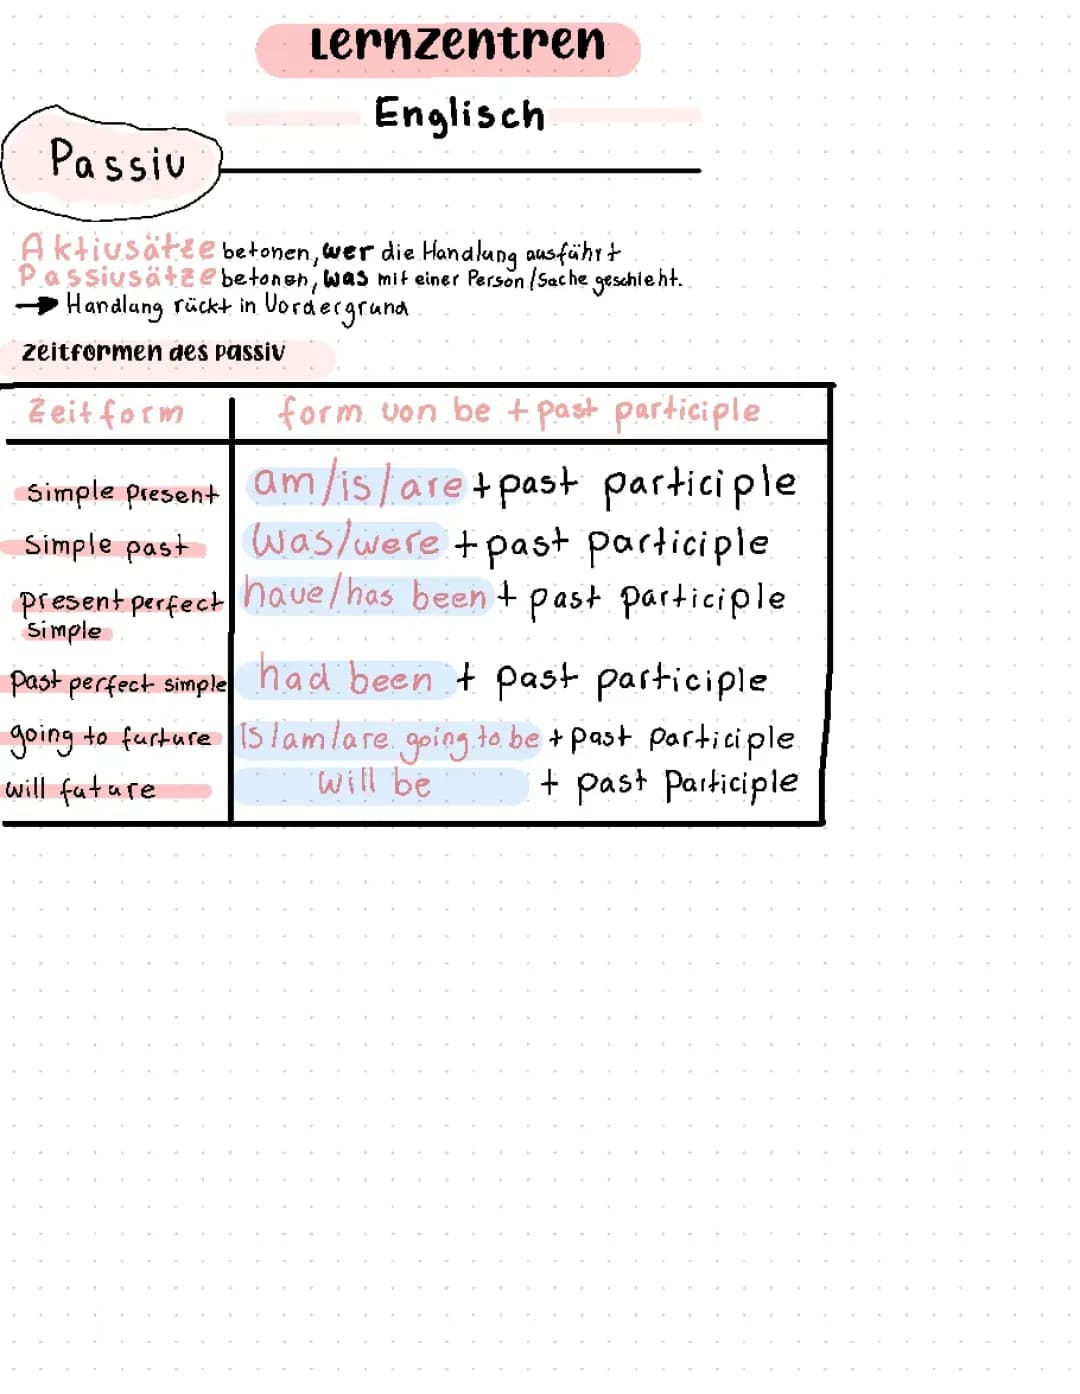 Lernzentren
Englisch
Passiv
Aktivsätze betonen, wer die Handlung ausführt
Passivsätze betonen, was mit einer Person/Sache geschieht.
→ Handlung rückt in Vordergrund
Zeitformen des Passiv
Zeitform form von be + past participle
simple present am/is/are + past participle
Simple past was/were + past participle
present perfect simple have/has been + past participle
Past perfect simple had been + past participle
going to furture Is/am/are going to be + past participle
will future will be + past Participle